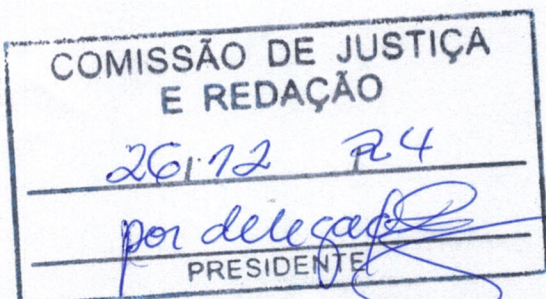 COMISSÃO DE JUSTIÇA
E REDAÇÃO
26/12 24
por delegação
PRESIDENTE